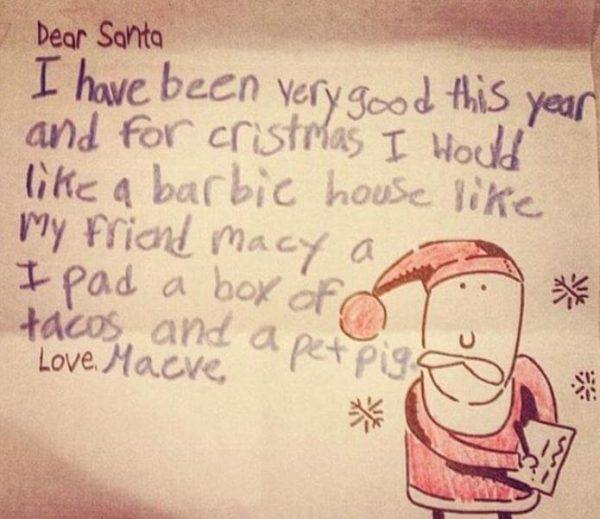 Dear Santa
I have been very good this year
and for cristmas I Would
like a barbie house like
My friend macy a
I pad a box of
tacos and a pet pig.
Love, Maeve,